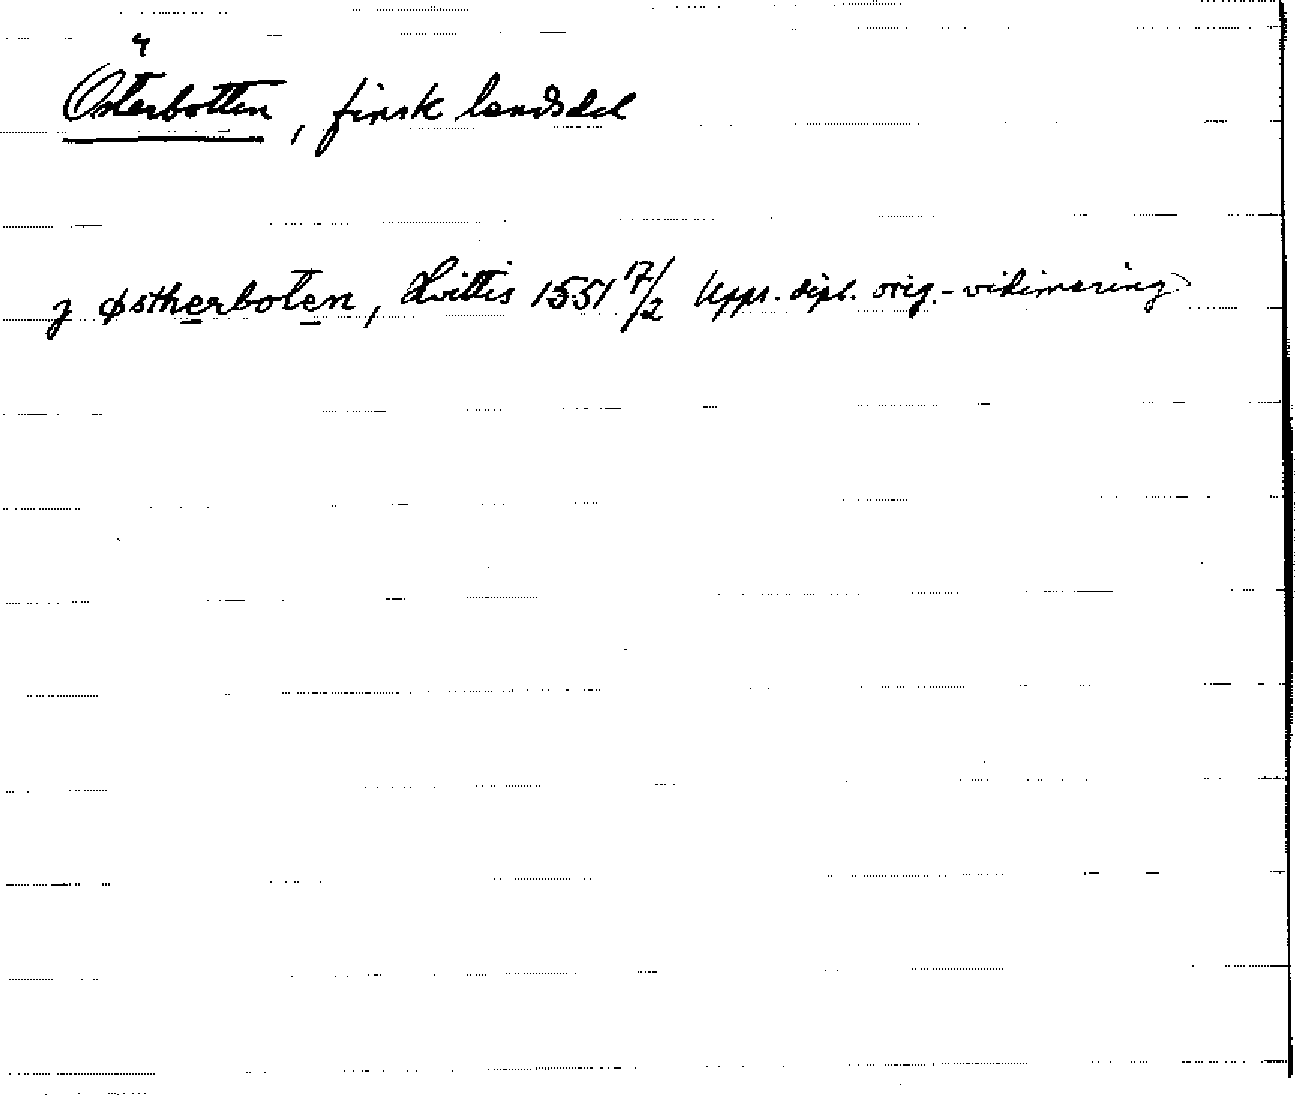 Österbotten, finsk landsdel
j østherboten, Hvittis 1551 7/2 Uppr. dipl. orig.-vidimering